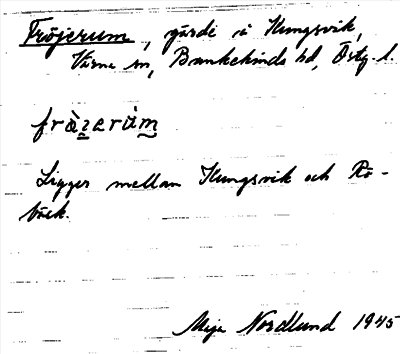 Fröjerum, gärde i Kungsvik,
Värna sn, Bankekinds hd, Östg. l.
fràzerùm
Ligger mellan Kungsvik och Rö-
bäck.
Maja Nordlund 1945